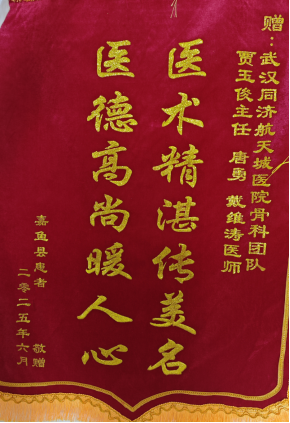 赠：武汉同济航天城医院骨科团队
贾玉俊主任 唐勇 戴维涛医师
医术精湛传美名
医德高尚暖人心
嘉鱼县患者 敬赠
二零二五年六月